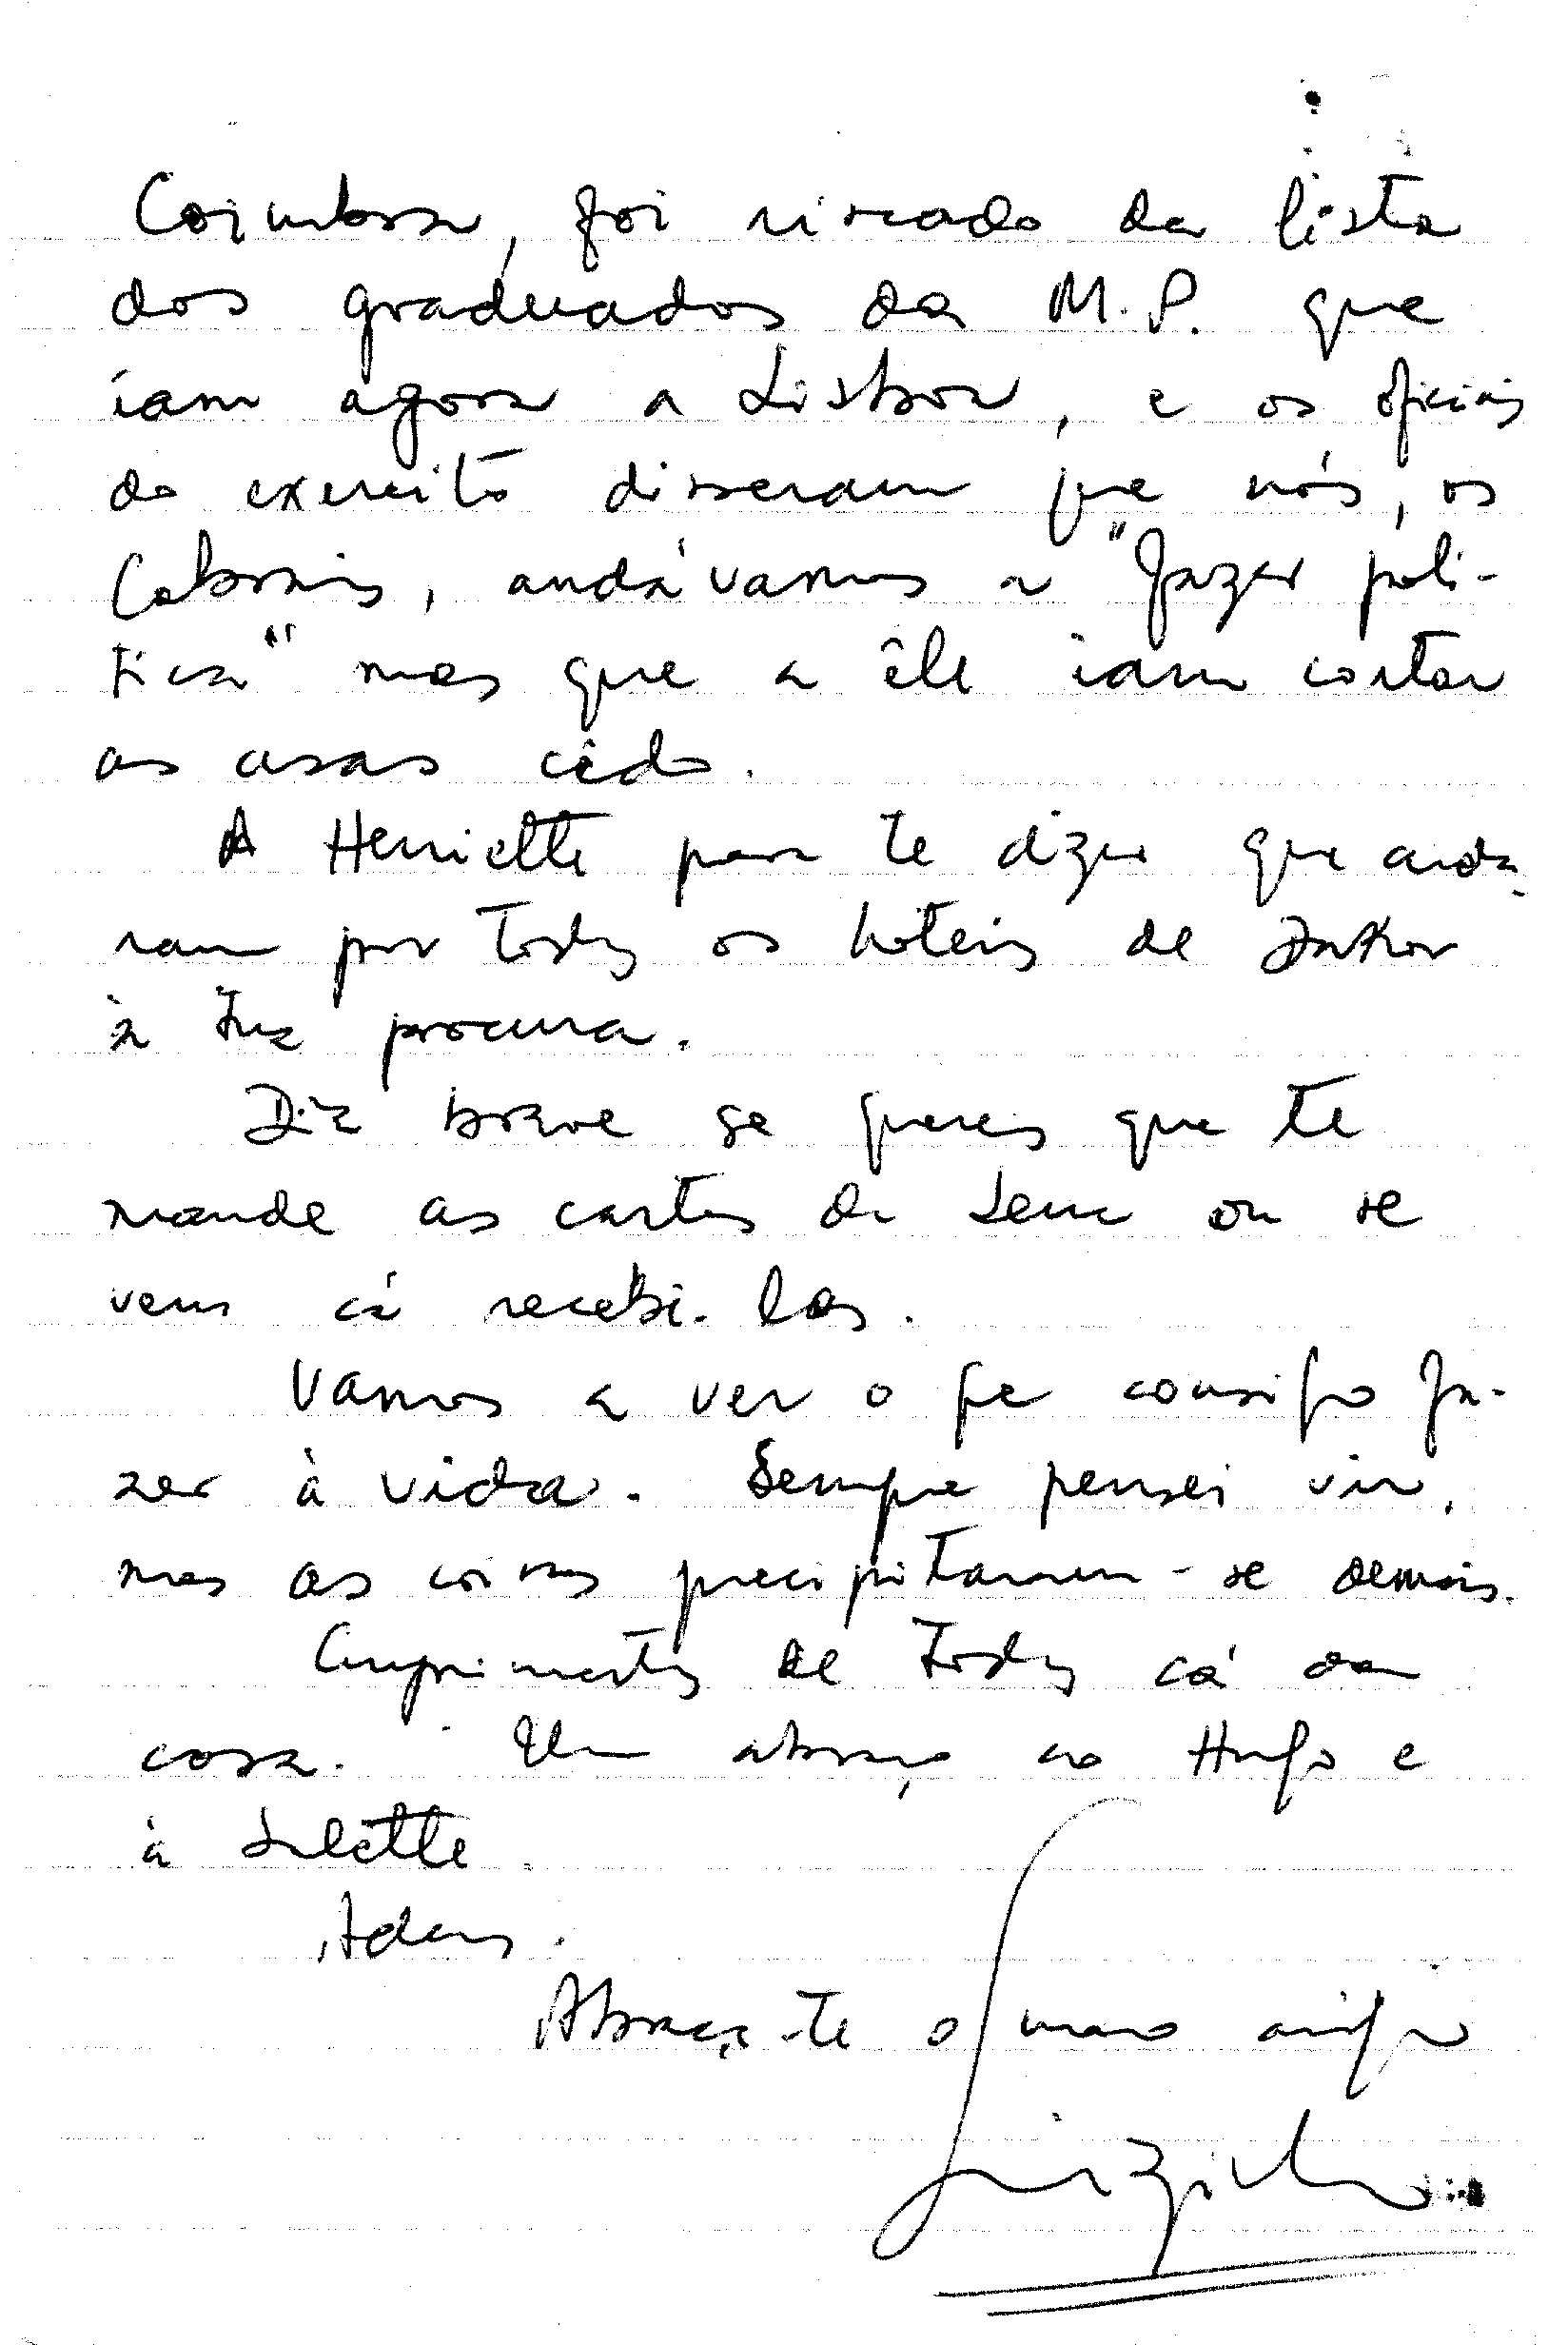 Coimbra, foi riscado da lista
dos graduados da M.P. que
iam agora a Lisboa, e os oficiais
do exercito disseram que nós, os
Cabrais, andávamos a "fazer poli-
tica" mas que a êle iam cortar
as asas cêdo.
A Henriette para te dizer que anda-
ram por todos os hoteis de Dakar
à tua procura.
Diz breve se queres que te
mande as cartas da Lena ou se
vens cá recebê-las.
Vamos a ver o que consigo fa-
zer à vida. Sempre pensei vir,
mas as coisas precipitaram-se demais.
Cumprimentos de todos cá da
casa. Um abraço ao Hugo e
à Lilette
Adeus.
Abraça-te o mano amigo